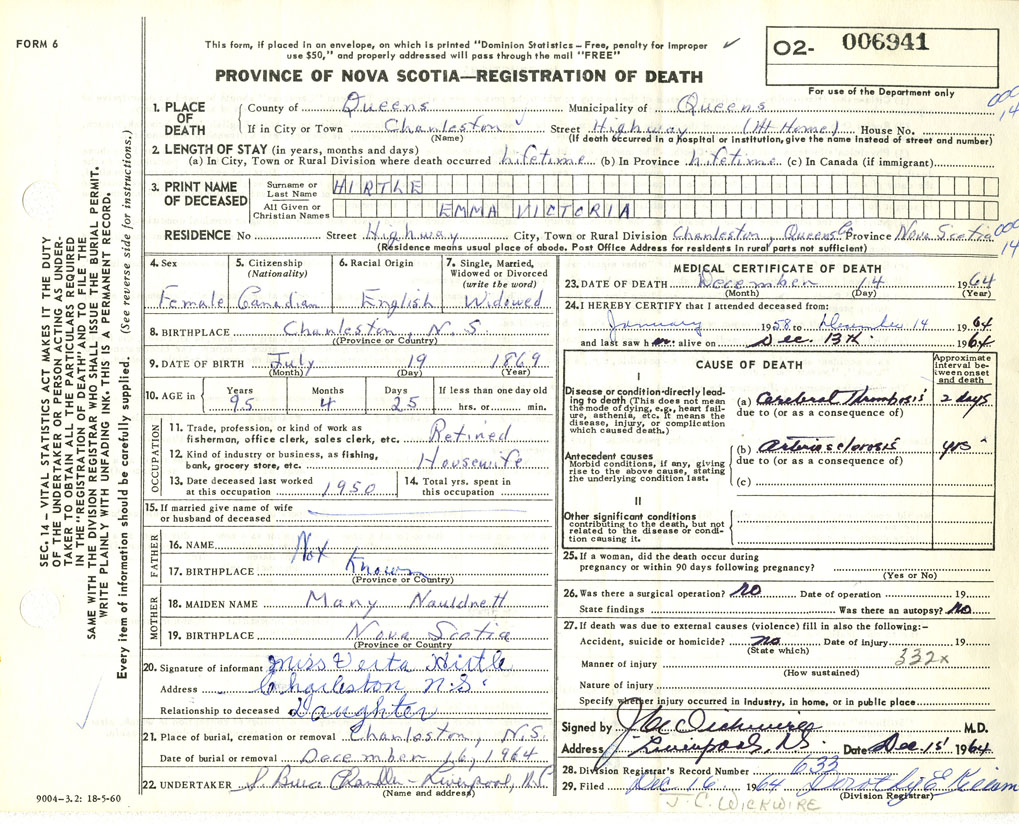 FORM 6
This form, if placed in an envelope, on which is printed "Dominion Statistics – Free, penalty for improper
use $50," and properly addressed will pass through the mail "FREE"
O2- 006941
For use of the Department only
PROVINCE OF NOVA SCOTIA—REGISTRATION OF DEATH
1. PLACE OF DEATH
County of Queens Municipality of Queens
If in City or Town Charleston Street Highway (At Home) House No.
(Name) (If death occurred in a hospital or institution, give the name instead of street and number)
2. LENGTH OF STAY (in years, months and days)
(a) In City, Town or Rural Division where death occurred lifetime (b) In Province lifetime (c) In Canada (if immigrant)
3. PRINT NAME OF DECEASED
Surname or Last Name HIRTLE
All Given or Christian Names EMMA VICTORIA
RESIDENCE No Street Highway City, Town or Rural Division Charleston, Queens Co Province Nova Scotia
(Residence means usual place of abode. Post Office Address for residents in rural parts not sufficient)
4. Sex
Female
5. Citizenship
(Nationality)
Canadian
6. Racial Origin
English
7. Single, Married,
Widowed or Divorced
(write the word)
Widowed
8. BIRTHPLACE Charleston, N.S.
(Province or Country)
9. DATE OF BIRTH July 19 1869
(Month) (Day) (Year)
10. AGE in
Years Months Days If less than one day old
95 4 25 hrs. or min.
OCCUPATION
11. Trade, profession, or kind of work as
fisherman, office clerk, sales clerk, etc. Retired
12. Kind of industry or business, as fishing,
bank, grocery store, etc. Housewife
13. Date deceased last worked
at this occupation 1950
14. Total yrs. spent in
this occupation
15. If married give name of wife
or husband of deceased
FATHER
16. NAME Not
17. BIRTHPLACE Known
(Province or Country)
MOTHER
18. MAIDEN NAME Mary
19. BIRTHPLACE Nova Scotia
(Province or Country)
20. Signature of informant Miss Verta Hirtle
Address Charleston N.S.
Relationship to deceased Daughter
21. Place of burial, cremation or removal Charleston, N.S.
Date of burial or removal December 16, 1964
22. UNDERTAKER Liverpool, N.S.
(Name and address)
9004—3.2: 18-5-60
MEDICAL CERTIFICATE OF DEATH
23. DATE OF DEATH December 14 1964
(Month) (Day) (Year)
24. I HEREBY CERTIFY that I attended deceased from:
January 1958 to December 14 1964
and last saw her alive on Dec. 13th 1964
CAUSE OF DEATH
Approximate
interval be-
tween onset
and death
I
Disease or condition directly lead-
ing to death (This does not mean
the mode of dying, e.g., heart fail-
ure, asthenia, etc. It means the
disease, injury, or complication
which caused death.)
(a) Cerebral Thrombosis 2 days
due to (or as a consequence of)
Antecedent causes
Morbid conditions, if any, giving
rise to the above cause, stating
the underlying condition last.
(b) Arteriosclerosis yrs
due to (or as a consequence of)
(c)
II
Other significant conditions
contributing to the death, but not
related to the disease or condi-
tion causing it.
25. If a woman, did the death occur during
pregnancy or within 90 days following pregnancy?
(Yes or No)
26. Was there a surgical operation? No Date of operation 19
State findings Was there an autopsy? No
27. If death was due to external causes (violence) fill in also the following:–
Accident, suicide or homicide? no Date of injury 19
(State which)
Manner of injury 332x
(How sustained)
Nature of injury
Specify whether injury occurred in industry, in home, or in public place
Signed by J C Wickwire M.D.
Address Liverpool, N.S. Date Dec 15 1964
28. Division Registrar's Record Number 633
29. Filed Dec 16 1964 Dorothy E
(Division Registrar)
J. C. WICKWIRE
SEC. 14 – VITAL STATISTICS ACT MAKES IT THE DUTY
OF THE UNDERTAKER OR PERSON ACTING AS UNDER-
TAKER TO OBTAIN ALL THE PARTICULARS REQUIRED
IN THE "REGISTRATION OF DEATH" AND TO FILE THE
SAME WITH THE DIVISION REGISTRAR WHO SHALL ISSUE THE BURIAL PERMIT.
WRITE PLAINLY WITH UNFADING INK. THIS IS A PERMANENT RECORD.
Every item of information should be carefully supplied. (See reverse side for instructions.)